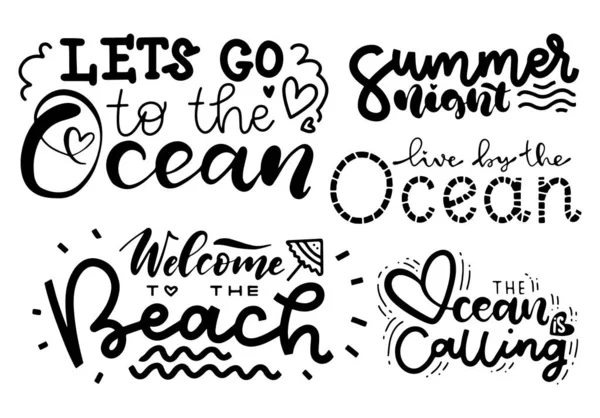 LETS GO
to the
Ocean
Summer
night
live by the
Ocean
Welcome
TO THE
Beach
THE
Ocean
is
Calling